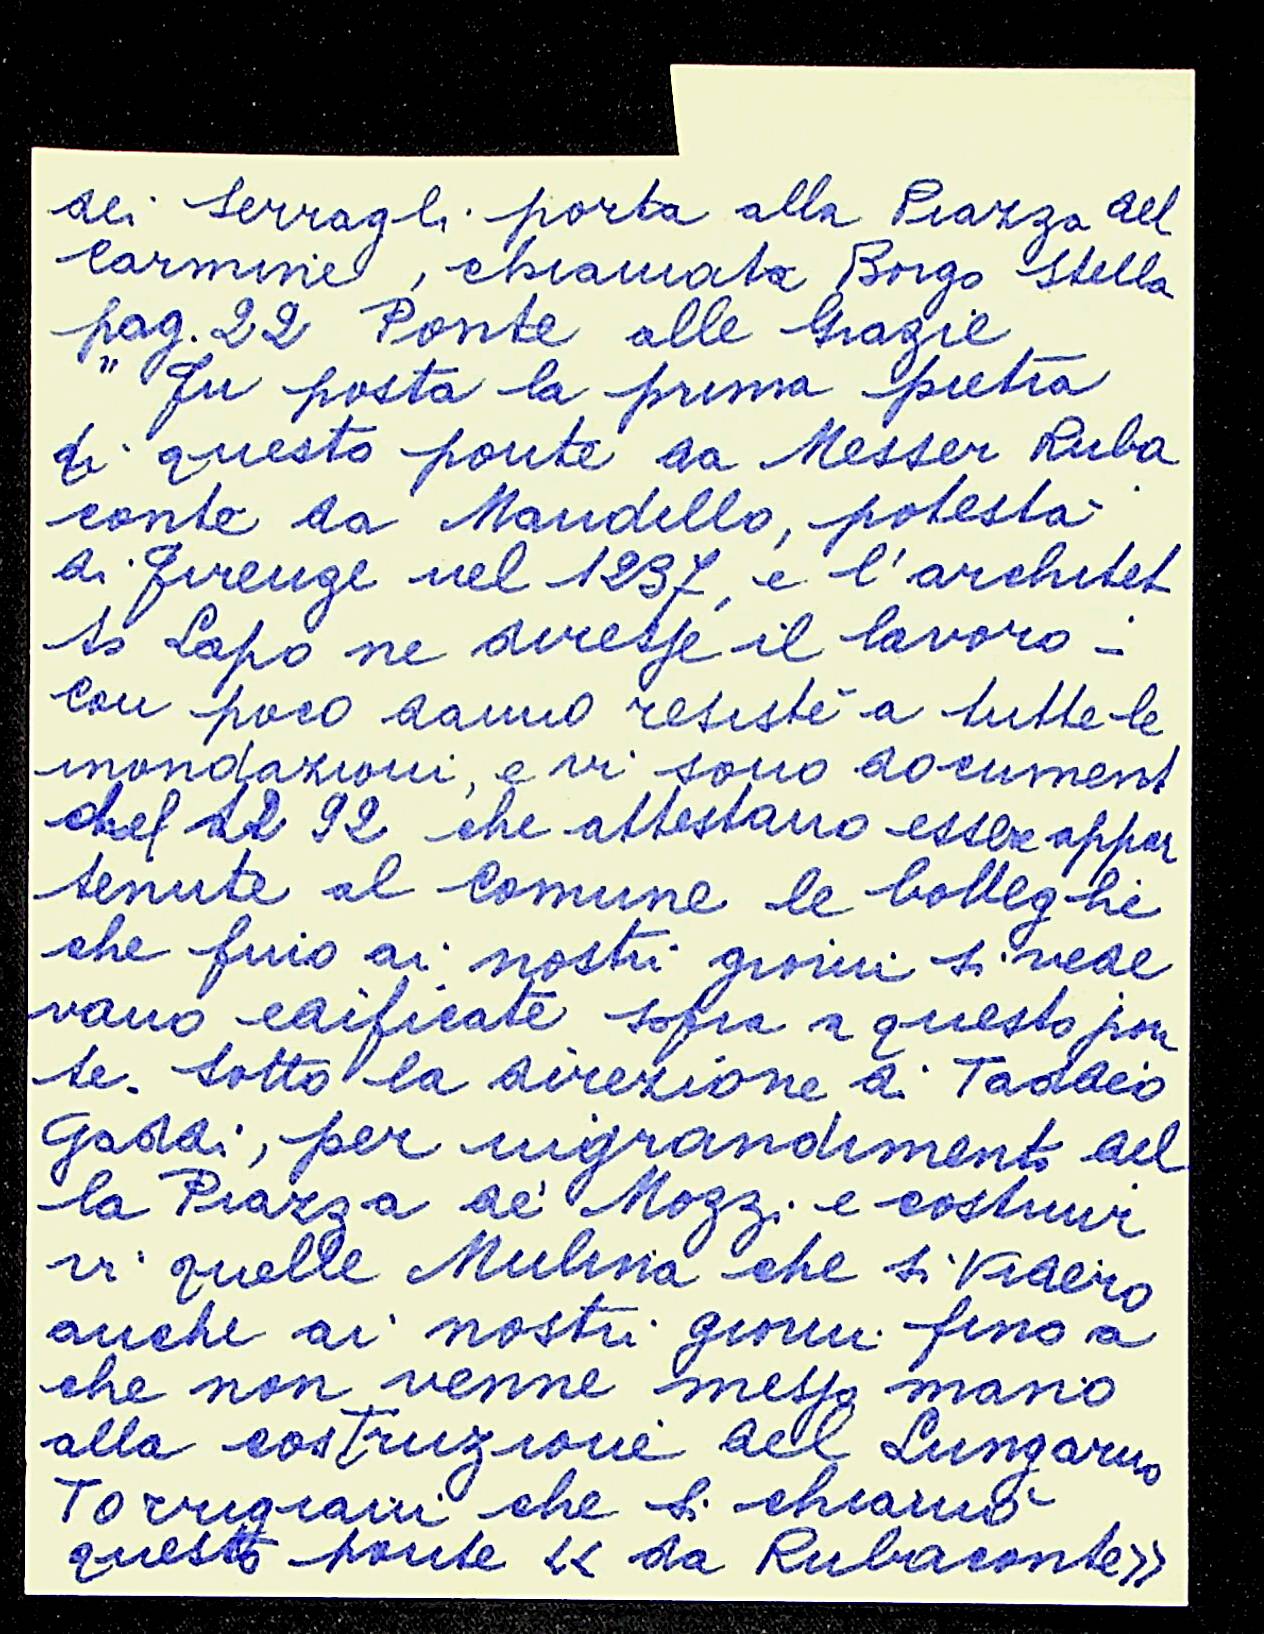 dei Serragli porta alla Piazza del
Carmine, chiamata Borgo Stella
pag. 22 Ponte alle Grazie
" Fu posta la prima pietra
di questo ponte da Messer Ruba
conte da Mandello, potestà
di Firenze nel 1237, e l'architet
to Lapo ne diresse il lavoro -
Con poco danno resistè a tutte le
inondazioni, e vi sono document
del 1292 che attestano essere appar
tenute al Comune le botteghe
che fino ai nostri giorni si vede
vano edificate sopra a questo pon
te. Sotto la direzione di Taddeo
Gaddi, per ingrandimento del
la Piazza de' Mozzi e costruir
vi quelle Mulina che si videro
anche ai nostri giorni fino a
che non venne messo mano
alla costruzione del Lungarno
Torrigiani che si chiamò
questo ponte << da Rubaconte>>